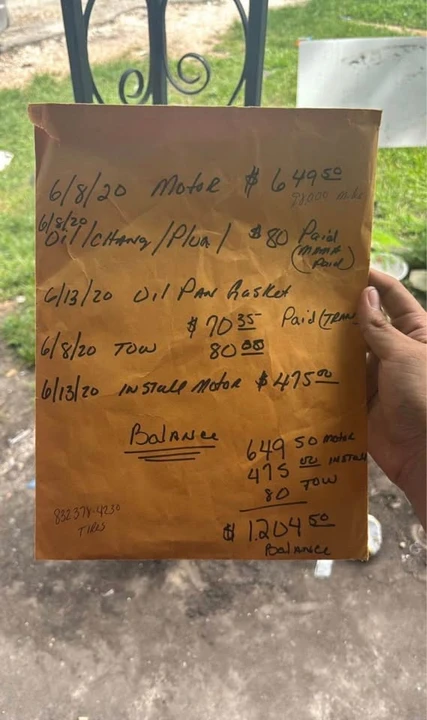 6/8/20 Motor $ 649 50
6/8/20
Oil/Chang/Plug/ $80 Paid
(MAMA
Paid)
6/13/20 Oil Pan Gasket
$ 70 35 Paid (TRAN
6/8/20 Tow 80 00
6/13/20 Install Motor $ 475 00
Balance
649 50 motor
475 00 Install
80 Tow
$ 1204 50
Balance
832 378-4230
TIRES